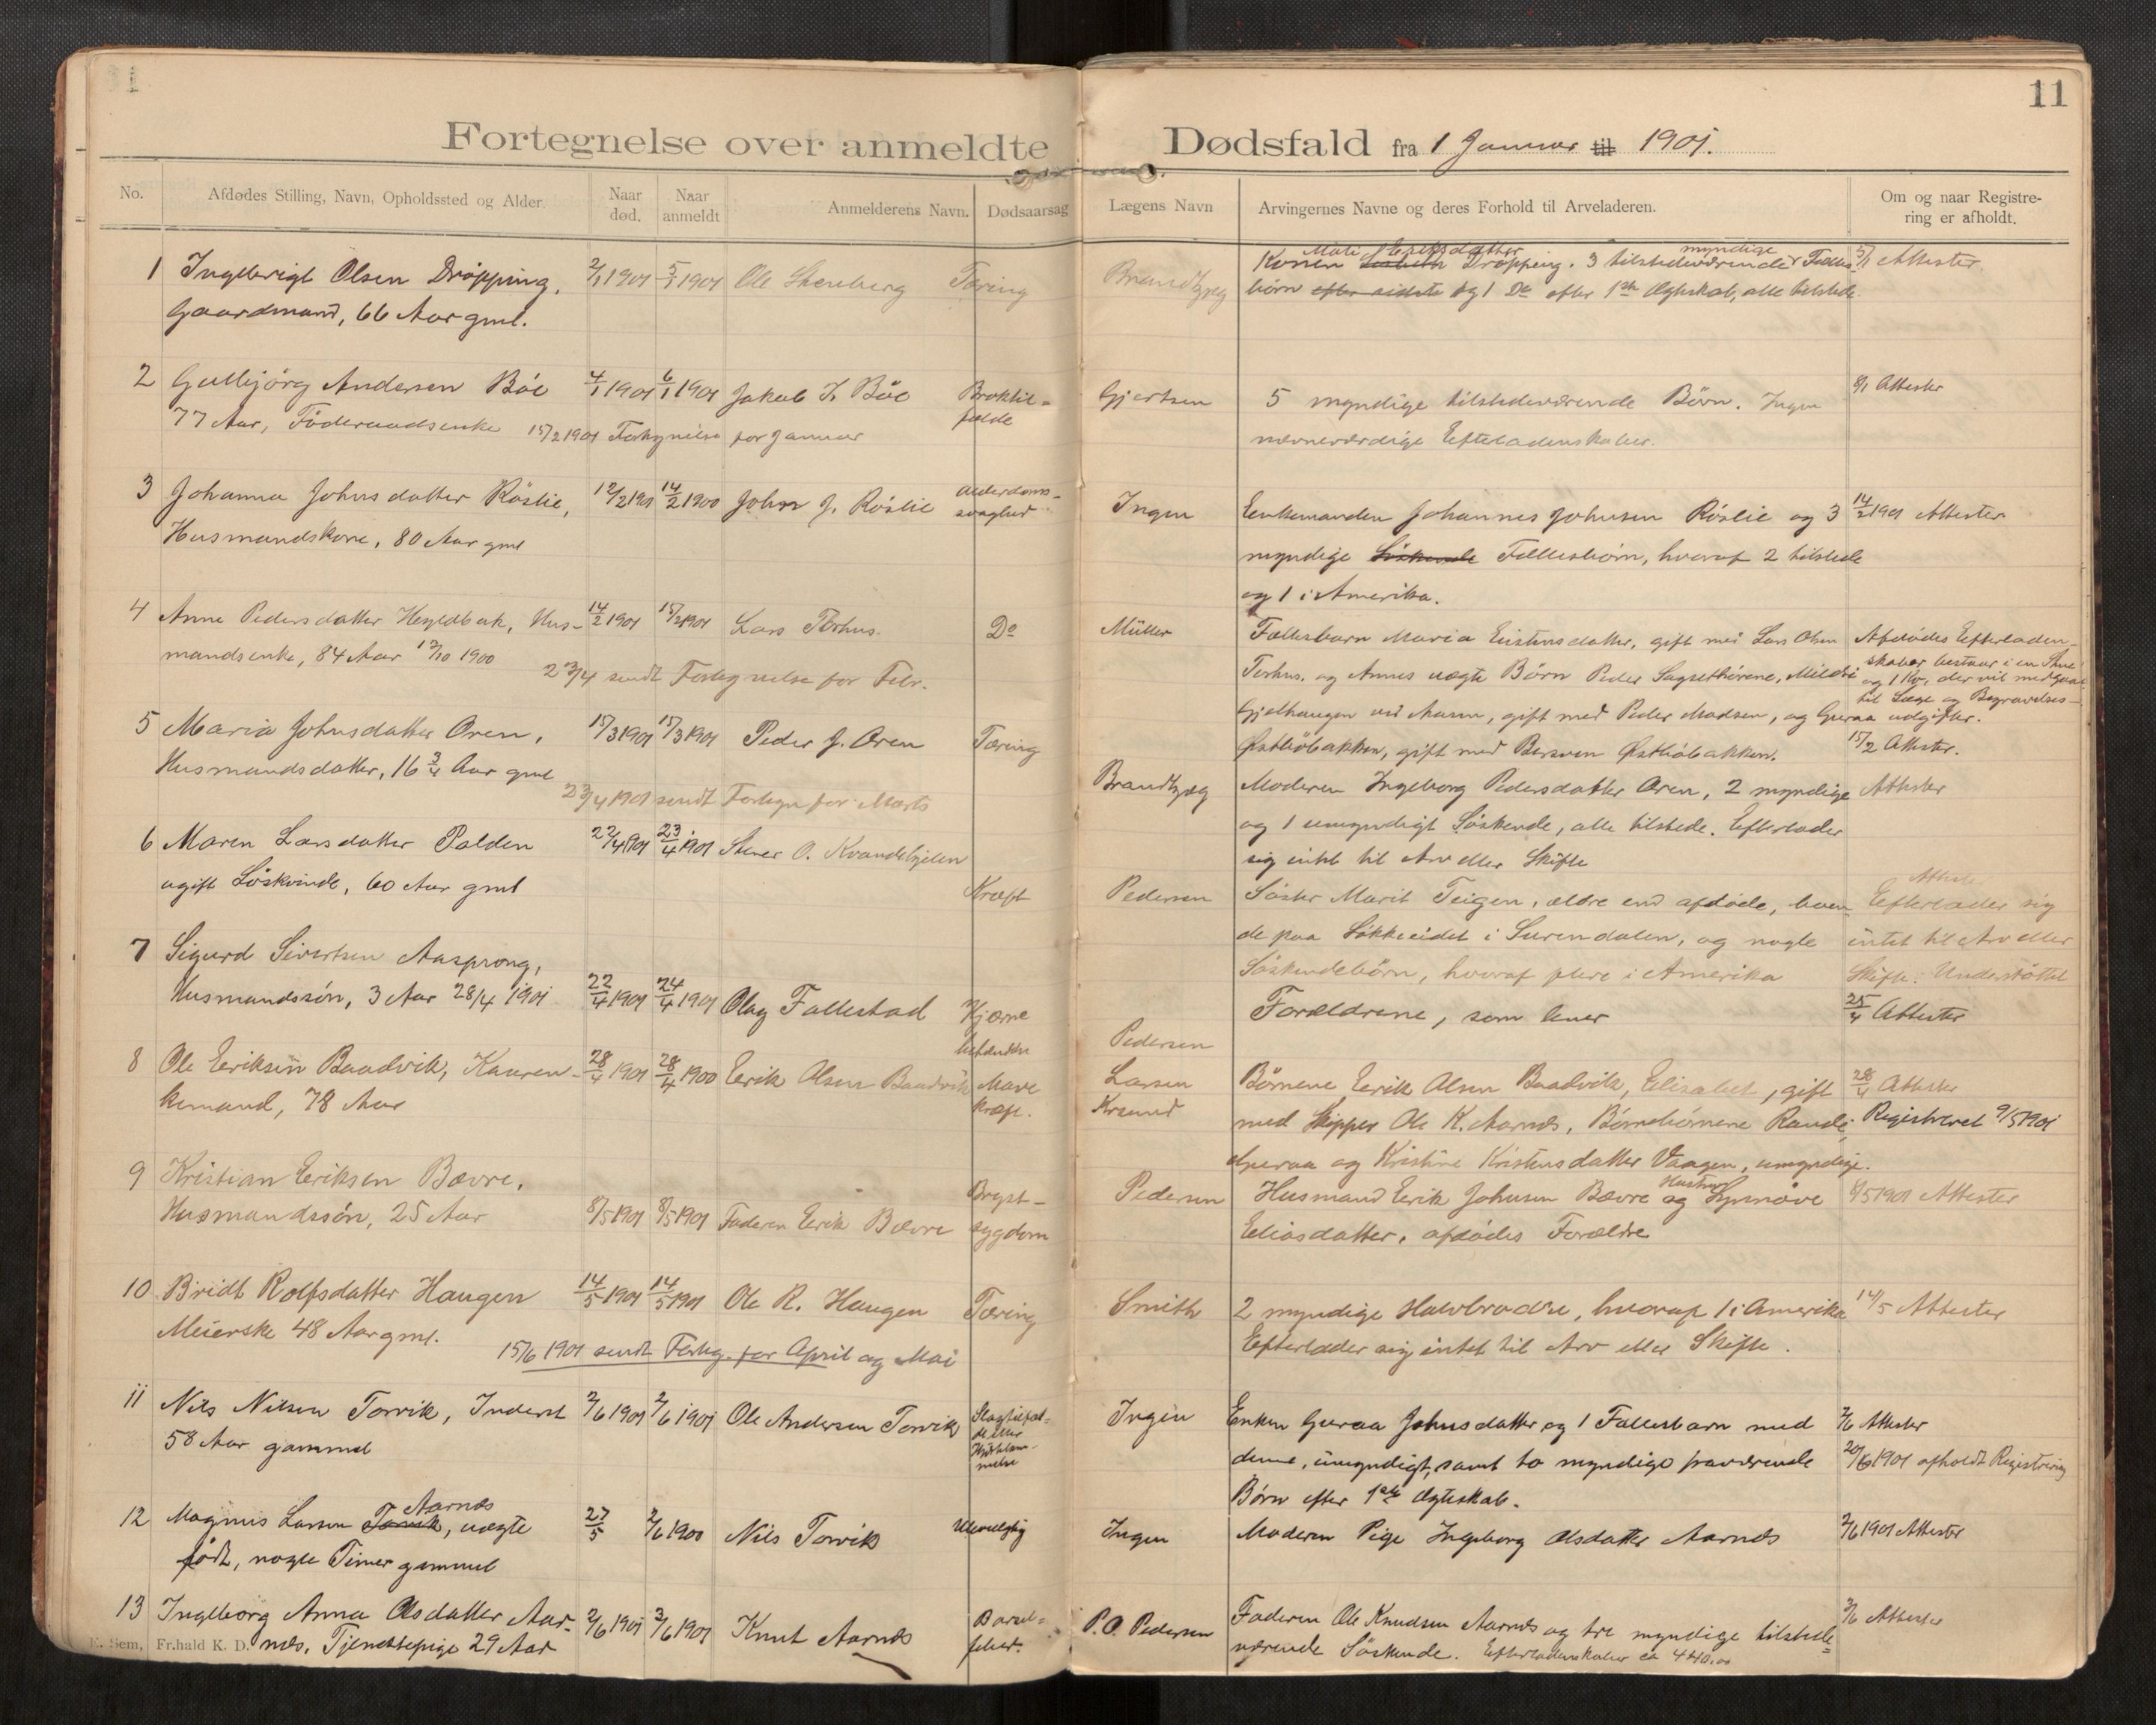 11
Fortegnelse over anmeldte Dødsfald fra 1 Januar til 1901.
No.
Afdødes Stilling, Navn, Opholdssted og Alder.
Naar død.
Naar anmeldt
Anmelderens Navn.
Dødsaarsag
Lægens Navn
Arvingernes Navne og deres Forhold til Arveladeren.
Om og naar Registrering er afholdt.
1 Ingebrigt Olsen Dröpping, 2/1 1901 5/1 1901 Ole Stenberg Tæring Brandtzæg
Gaardmand, 66 Aar gml.
Mali Eriksdatter myndige
Konen Dröpping. 3 tilstedeværende Fælles- 5/1 Attester
børn efter sidste og 1 Do efter 1ste Ægteskab, alle tilstede.
2 Gulbjörg Andersen Böe 4/1 1901 6/1 1901 Jakob J. Böe Broktil-
fælde Gjertsen
77 Aar, Föderaadsenke 15/2 1901 Fortegnelse for Januar
5 myndige tilstedeværende Börn. Ingen 8/1 Attester
nævneværdige Efterladenskaber.
3 Johanna Johnsdatter Röslie, 12/2 1901 14/2 1900 John J. Röslie Alderdoms-
svaghed Ingen
Husmandskone, 80 Aar gml
Enkemanden Johannes Johnsen Röslie og 3 14/2 1901 Attester
myndige Söskende Fællesbörn, hvoraf 2 tilstede
og 1 i Amerika.
4 Anne Pedersdatter Hegldbak, Hus- 14/2 1901 15/2 1901 Lars Torhus. Do Müller
mandsenke, 84 Aar 13/10 1900
23/4 sendt Fortegnelse for Febr.
Fællesbarn Maria Eistensdatter, gift med Lars Olsen
Torhus, og Annes uægte Börn Peder Sagsethörene, Mildri
Gjelhaugen ved Aasen, gift med Peder Madsen, og Guraa
Østhöbakken, gift med Bersven Østhöbakken.
Afdødes Efterladen-
skaber bestaar i en Stue
og 1 Ko, der vil medgaa
til Læge og Begravelses-
udgifter.
15/2 Attester.
5 Maria Johnsdatter Oren, 15/3 1901 15/3 1901 Peder J. Oren Tæring Brandtzæg
Husmandsdatter, 16 3/4 Aar gml
23/4 1901 sendt Fortegn for Marts
Moderen Ingeborg Pedersdatter Oren, 2 myndige Attester
og 1 umyndigt Söskende, alle tilstede. Efterlader
sig intet til Arv eller Skifte
6 Maren Larsdatter Palden 22/4 1901 23/4 1901 Stener O. Kvandehjelen Kræft Pedersen
ugift Löskvinde, 60 Aar gml
Söster Marit Teigen, ældre end afdöde, boen-
de paa Lökkeeidet i Surendalen, og nogle
Söskendebörn, hvoraf flere i Amerika
Attest
Efterlader sig
intet til Arv eller
Skifte. Understöttet
7 Sigurd Sivertsen Aasprong,
Husmandssön, 3 Aar 28/4 1901 22/4 1901 24/4 1901 Olag Fallestad Hjerne
betændelse Pedersen
Forældrene, som lever 25/4 Attester
8 Ole Eeriksen Baadvik, Kaaren- 28/4 1901 28/4 1900 Eerik Olsen Baadvik Mave
kræft. Larsen
Krsund
kemand, 78 Aar
Börnene Eerik Olsen Baadvik, Elisabet, gift 28/4 Attester
med Skipper Ole K. Aarnæs, Börnebörnene Randi, Registreret 9/5 1901
Guraa og Kristine Kristensdatter Vaagen, umyndige.
9 Kristian Eeriksen Bævre, Bryst-
Husmandssön, 25 Aar 8/5 1901 8/5 1901 Faderen Eerik Bævre sygdom Pedersen
Hustru
Husmand Eerik Johnsen Bævre og Synnöve 8/5 1901 Attester
Eliasdatter, afdödes Forældre
10 Bridt Rolfsdatter Haugen 14/5 1901 14/5 1901 Ole R. Haugen Tæring Smith
Meierske 48 Aar gml.
15/6 1901 sendt Forteg. for April og Mai
2 myndige Halvbrødre, hvoraf 1 i Amerika 14/5 Attester
Efterlader sig intet til Arv eller Skifte.
11 Nils Nilsen Torvik, Inderst 2/6 1901 2/6 1901 Ole Andersen Torvik Slagtilfæl-
de eller Ingen
58 Aar gammel
Enken Guraa Johnsdatter og 1 Fællesbarn med 2/6 Attester
denne, umyndigt, samt to myndige fraværende 20/6 1901 afholdt Registrering
Börn efter 1ste Ægteskab.
Aarnæs
12 Magnus Larsen Torvik, uægte 27/5 2/6 1900 Nils Torvik Ingen
født, nogle Timer gammel
Moderen Pige Ingeborg Olsdatter Aarnæs 2/6 1901 Attester
13 Ingeborg Anna Olsdatter Aar- 2/6 1901 3/6 1901 Knut Aarnæs Barsel-
feber. P. O. Pedersen
næs, Tjenestepige 29 Aar
Faderen Ole Knudsen Aarnæs og tre myndige tilstede- 3/6 Attester
værende Söskende. Efterladenskaber ca 440,00
E. Sem, Fr.hald K. D.